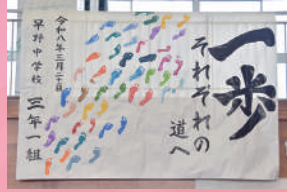 一歩
それぞれの
道へ
令和八年三月二十日
早野中学校 三年一組